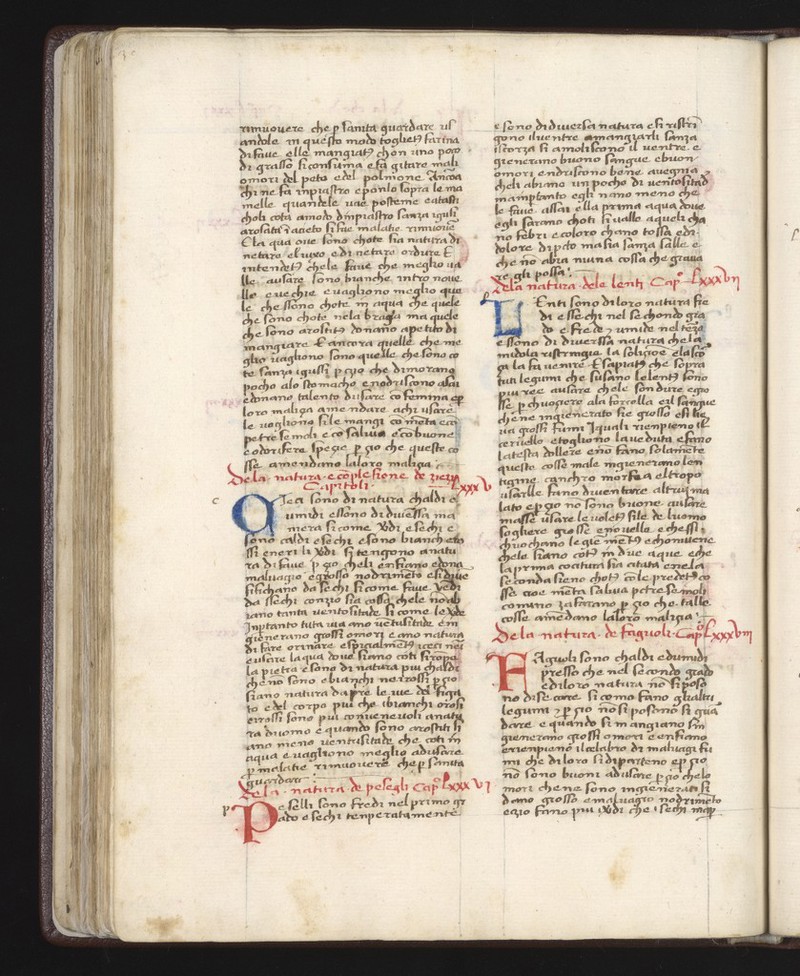 rimuovere che p sanita guardare us
andole in questo modo toglietj farina
di fave elle mangiatj chon uno poco
di grasso si consuma e fa gitare mali
omori del peto e del polmone Ancoa
chi ne fa inpiastro e ponlo sopra le ma
melle quando le vae posteme
choli cota amodo dinpiastro sanza igusi
rosata aceto si fue malatie rimuove
Ela qua ove sono chote sia natura di
netare el viso e di netare ordure E
intendetj chele fave che meglio va
lle ausare sono bianche intro nove
lle e vechie e vagliono meglio que
le che sono chote in aqua che quele
che sono chote nela bragia ma quele
che sono arostite donano apetito di
mangiare E ancora quelle che me
glio vagliono sono quelle che sono co
te sanza igussi p cio che dimorano
pocho alo stomacho e nodriscono asai
e donano talento dusare co femina ep
loro maliga amendare achi usare
le vogliono sile mangi co menta e co
petrosemoli e co salvia e co buone
e odorifere spegie p gio che queste co
sse amendano la loro maliga
Dela natura e coplesione de ziezi
Capitoli LxxxV
C
Ceci sono di natura chaldi e
umidi e sono di divessa ma
mera si come vdi e sechi e
sono caldi e sechi e sono bianchi e ro
ssi e neri li vdi si tengono a natu
ra di fave p gio cheli enfiano e dona
malvagio e grosso nodrimeto e si dive
sifichano da sechi si come fave vedi
da sechi conzio sia cossa chele no ab
iano tanta ventositade si come le vde
Inptanto tuta via ano vetusitade e in
gienerano grossi omori e ano natura
di fare orinare espicialmente i ceci neri
e usare laqua dove siano coti si ropie
la pietra e sono di natura piu chaldi
che no sono e bianchi ne rossi p gio
siano natura dapre le vie del figa
to e del corpo piu che i bianchi o rosi
e i rossi sono piu convenevoli a natu
ra duomo e quando sono arostiti li
ano meno ventusitade che coti in
aqua e vagliono meglio adusare
p malatie rimuovere che p sanita
guardare
Dela natura de peselli Cap LxxxVI
P
Peselli sono fredi nel primo gr
ado e sechi tenperatamente
e sono di diversa natura e si ristri
gono il ventre a mangiarli sanza
iscorza si amoliscono il ventre e
gienerano buono sangue e buon
omori e ndriscono bene avegnia
cheli abiano un pocho di ventositad
inanptanto egli nano meno che
le fave assai ella prima aqua dove
egli sarano choti si vallo aquegli cha
no febri e coloro chano tossa e di
dolore di peto ma sia sanza salle e
che no abia nuna cossa che grava
re gli possa
Dela natura dele lenti Cap LxxxVII
L
Lenti sono di loro natura fre
di e sechi nel sechondo gra
do e frede e umide nel terzo
e sono di diverssa natura chela
midola ristringie la soligioe ela scor
ga la fa venire E sapiatj che sopra
tuti legumi che susano le lentj sono
piu ree ausare chele son dure e gro
sse p chuogiere ala forcella e il sangue
chene ingienerato sie grosso e si lie
va grossi fumi I quali rienpieno il
cervello e togliono la veduta e fano
la testa dollere e no fano solamete
queste cosse male ingienerano len
tigine canchro morfea e l troppo
usarlle fano diventare altrui ma
lato e p gio no sono buone ausare
masse usare le voletj sile de luomo
sogliere grosse e novelle e che ssi
chuochano le gie mete e chonviene
chele siano cotj in due aque e che
la prima cocitura sia gitata e nela
seconda sieno chotj co le predetj co
sse cioe menta salvia petrosemoli
comino zafarano p gio che talle
cosse amedano laloro maligia
Dela natura de faguoli Cap LxxxVIII
F
Faguoli sono chaldi e dumidi
presso che nel secondo grado
e di loro natura no si poso
no disecare si como fano glialtri
legumi e p gio no si posono si gua
dare e quando si mangiano sin
gienerano grossi omori e enfiano
e rienpieno il celabro di malvagi fu
mi che di loro si diparteno e p gio
no sono buoni adusare p gio chelo
mori chene sono ingienerati si
dano grosso e malvagio nodrimeto
e gio fano piu i vdi che i sechi